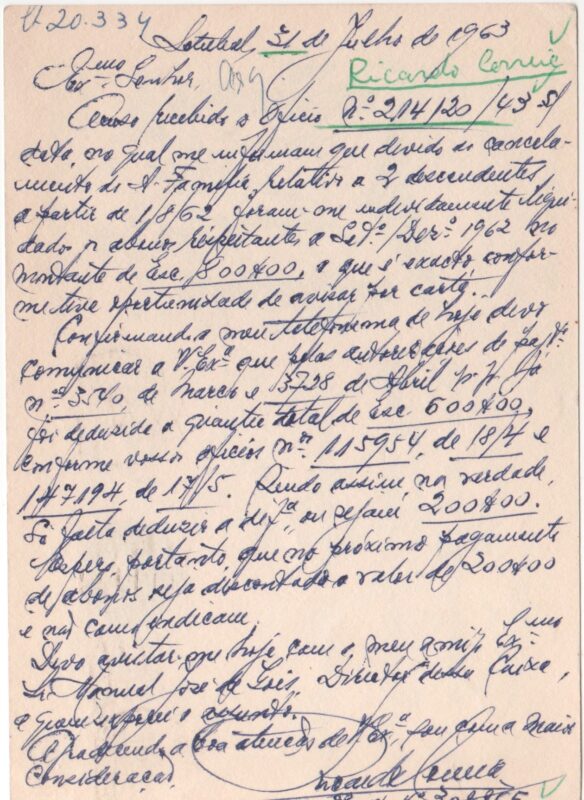 U 20.334
Setubal, 31 de Julho de 1963
Exmo Senhor,
Ricardo Correia
Acuso recebido o ofício nº 214120/43 s/
data, no qual me informam que devido ao cancela-
mento do A. Família, relativo a 2 descendentes,
a partir de 1/8/62 foram-me indevidamente liqui-
dados os abonos respeitantes a Setº/Dezº 1962 no
montante de Esc. 800$00, o que é exacto confor-
me tive oportunidade de avisar por carta.
Confirmando o meu telefonema de hoje devo
comunicar a V. Exª que pelas autorizações de pagtº
nºs 3540, de Março e 3728 de Abril p.p. já
foi deduzida a quantia total de Esc. 600$00,
conforme vossos ofícios nºs 115954, de 18/4 e
147194, de 17/5. Sendo assim, na verdade,
Só falta deduzir a difª ou sejam 200$00.
Espero, portanto, que no próximo pagamento
de abonos seja descontado o valor de 200$00
e não como indicam.
Devo avistar-me hoje com o meu amigo Exmo
Sr. Manuel José de Gois, Director dessa Caixa,
a quem exporei o assunto.
Agradecendo a boa atenção de V. Exª sou com a maior
Consideração,